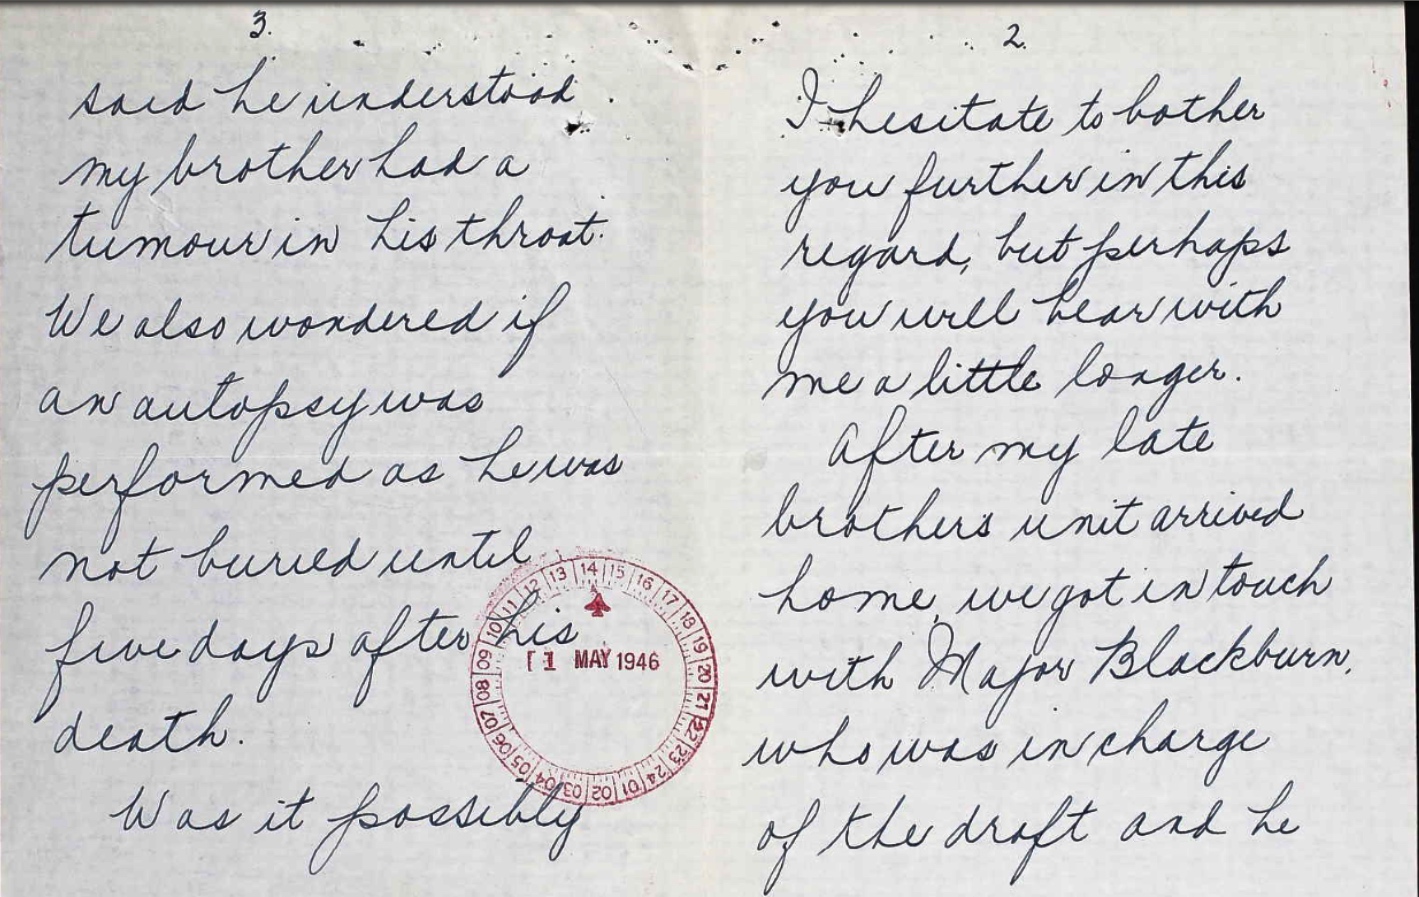 2.
I hesitate to bother
you further in this
regard, but perhaps
you will bear with
me a little longer.
After my late
brothers unit arrived
home, we got in touch
with Major Blackburn,
who was in charge
of the draft and he
3.
said he understood
my brother had a
tumour in his throat.
We also wondered if
an autopsy was
performed as he was
not buried until
five days after his
death.
Was it possibly
01 02 03 04 05 06 07 08 09 10 11 12 13 14 15 16 17 18 19 20 21 22 23 24
1 MAY 1946